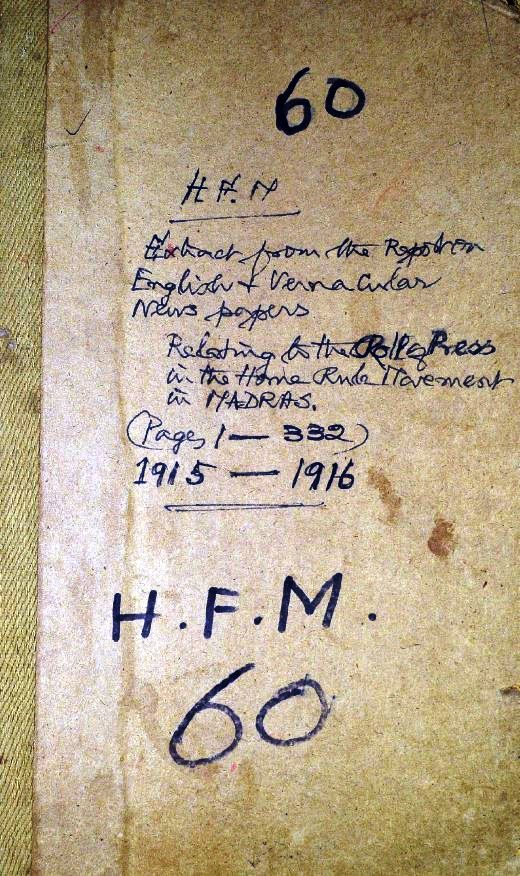 60
H F. M
Extract from the Report on
English & Vernacular
News papers
Relating to the Roll of Press
in the Home Rule Movement
in MADRAS.
(Pages 1 — 332)
1915 — 1916
H.F.M.
60